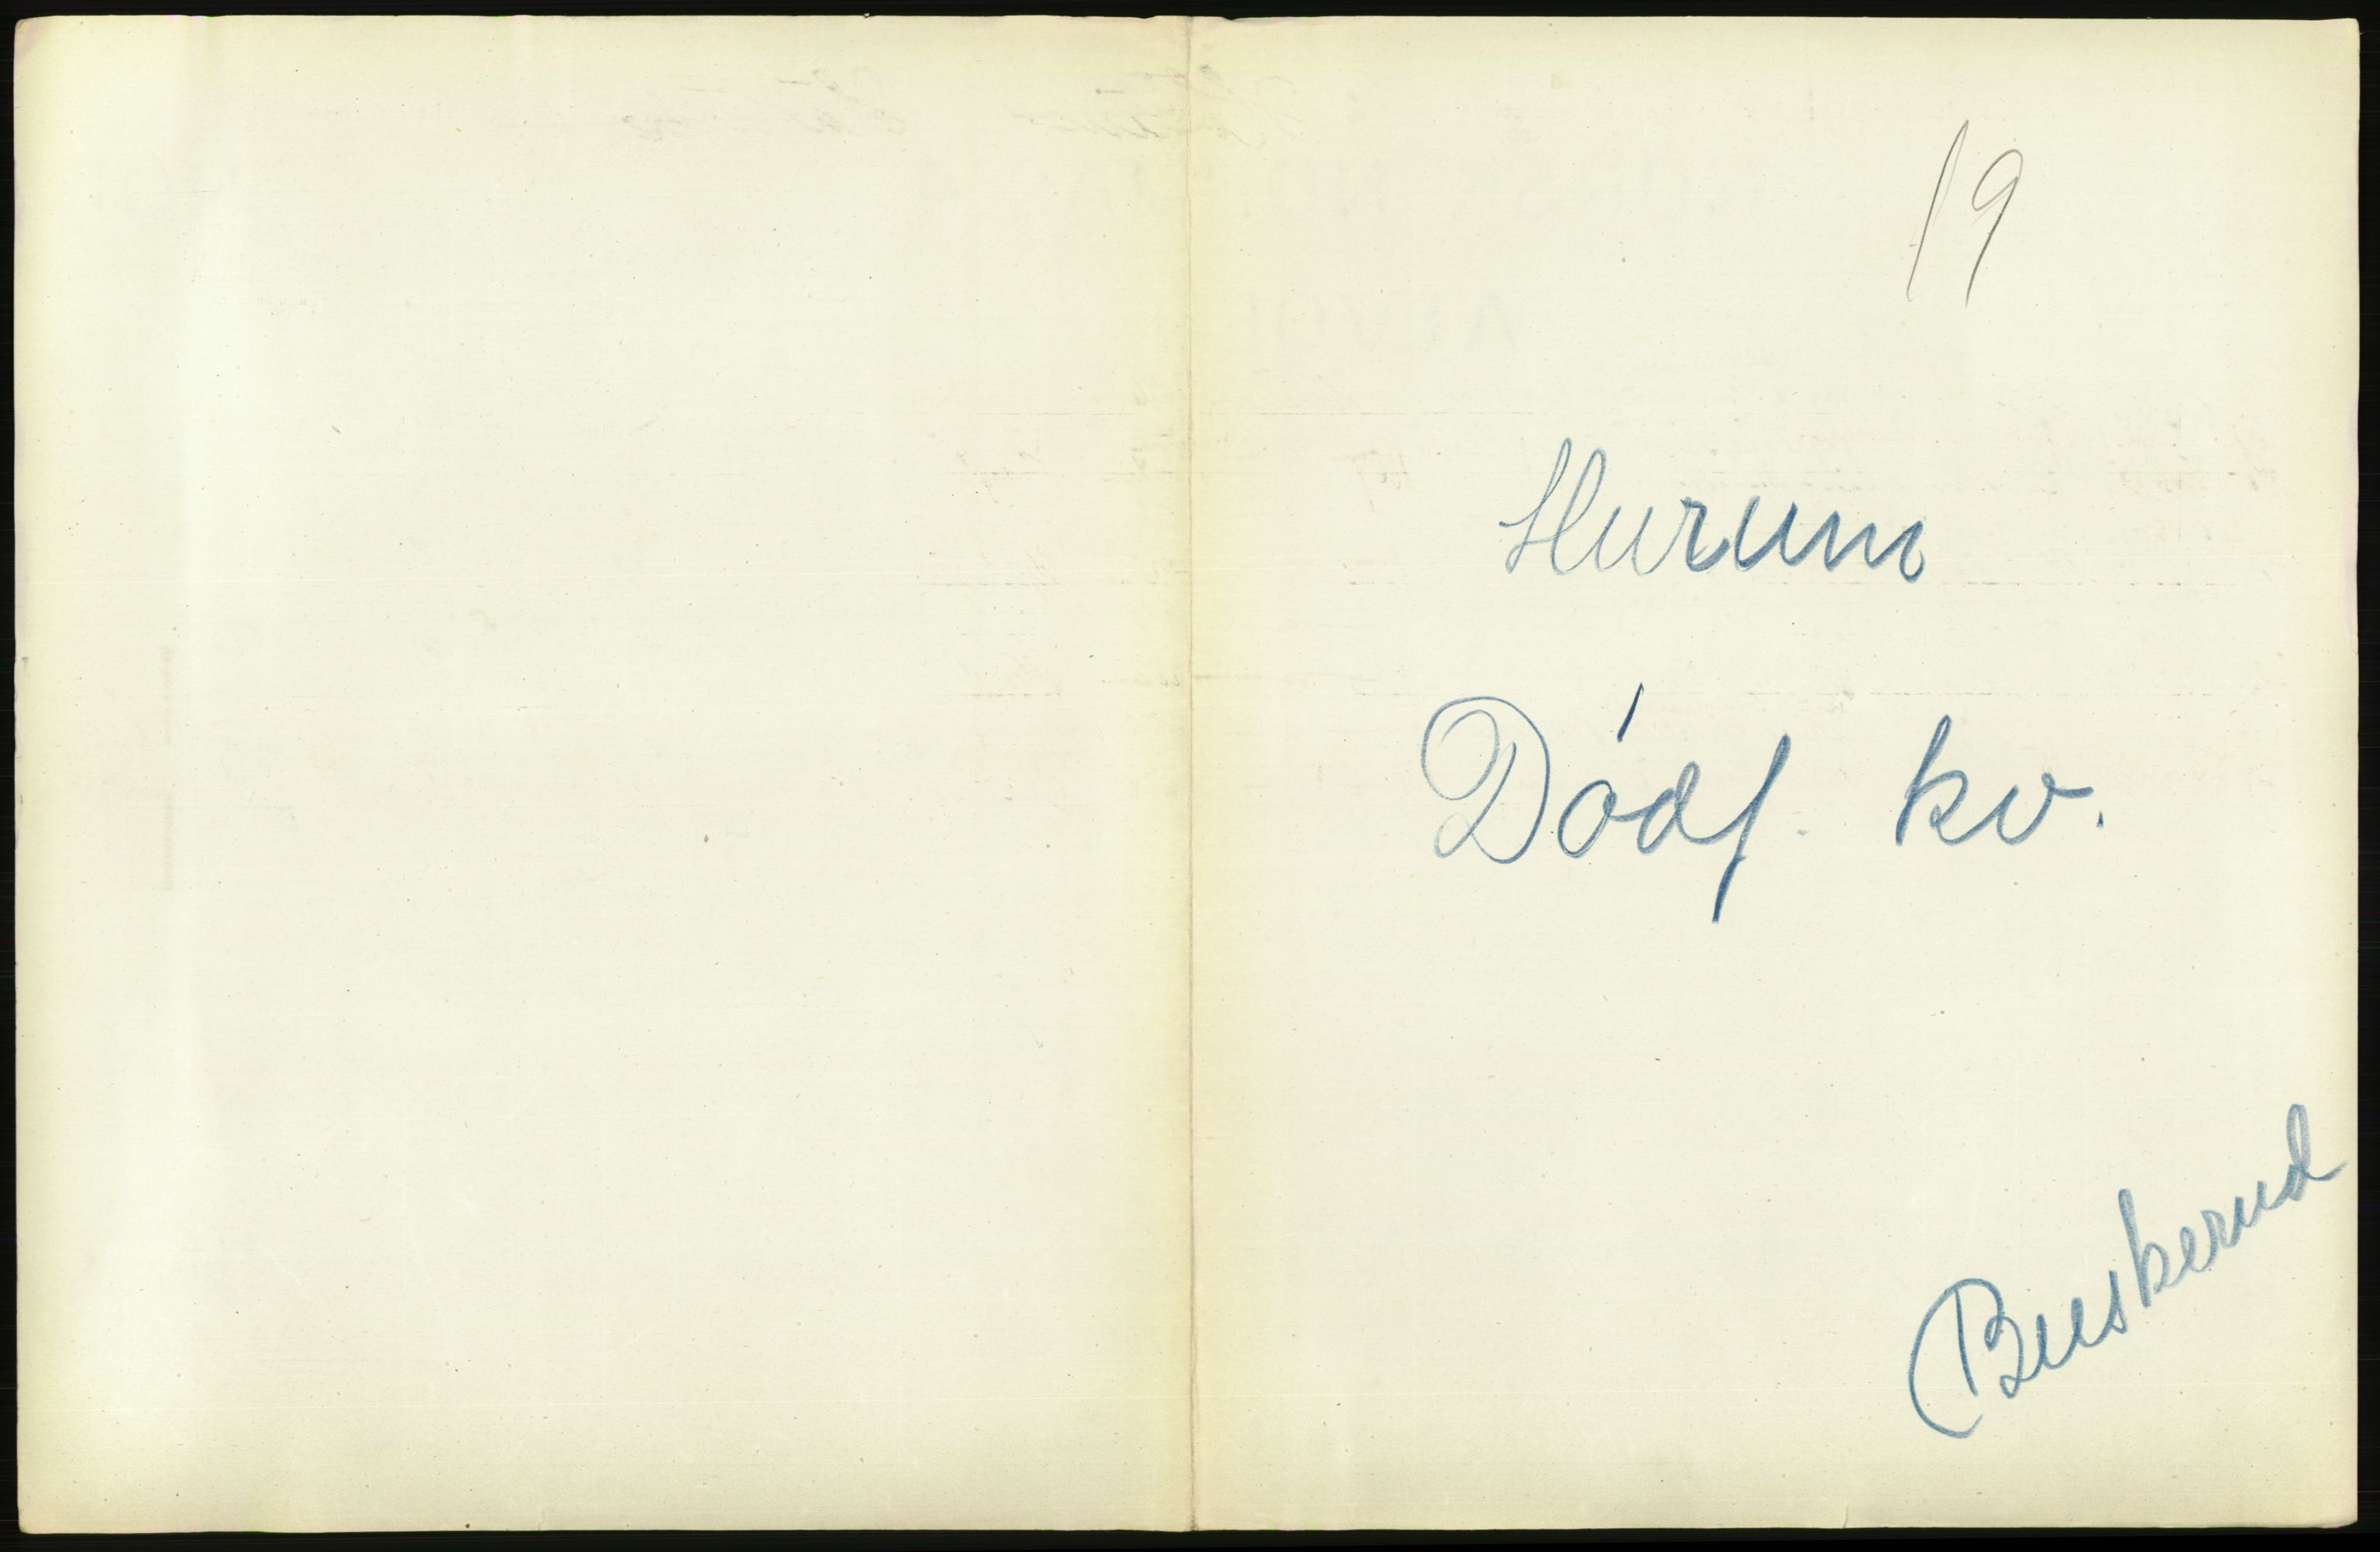 19
Hurum
Dódf. kv.
Buskerud